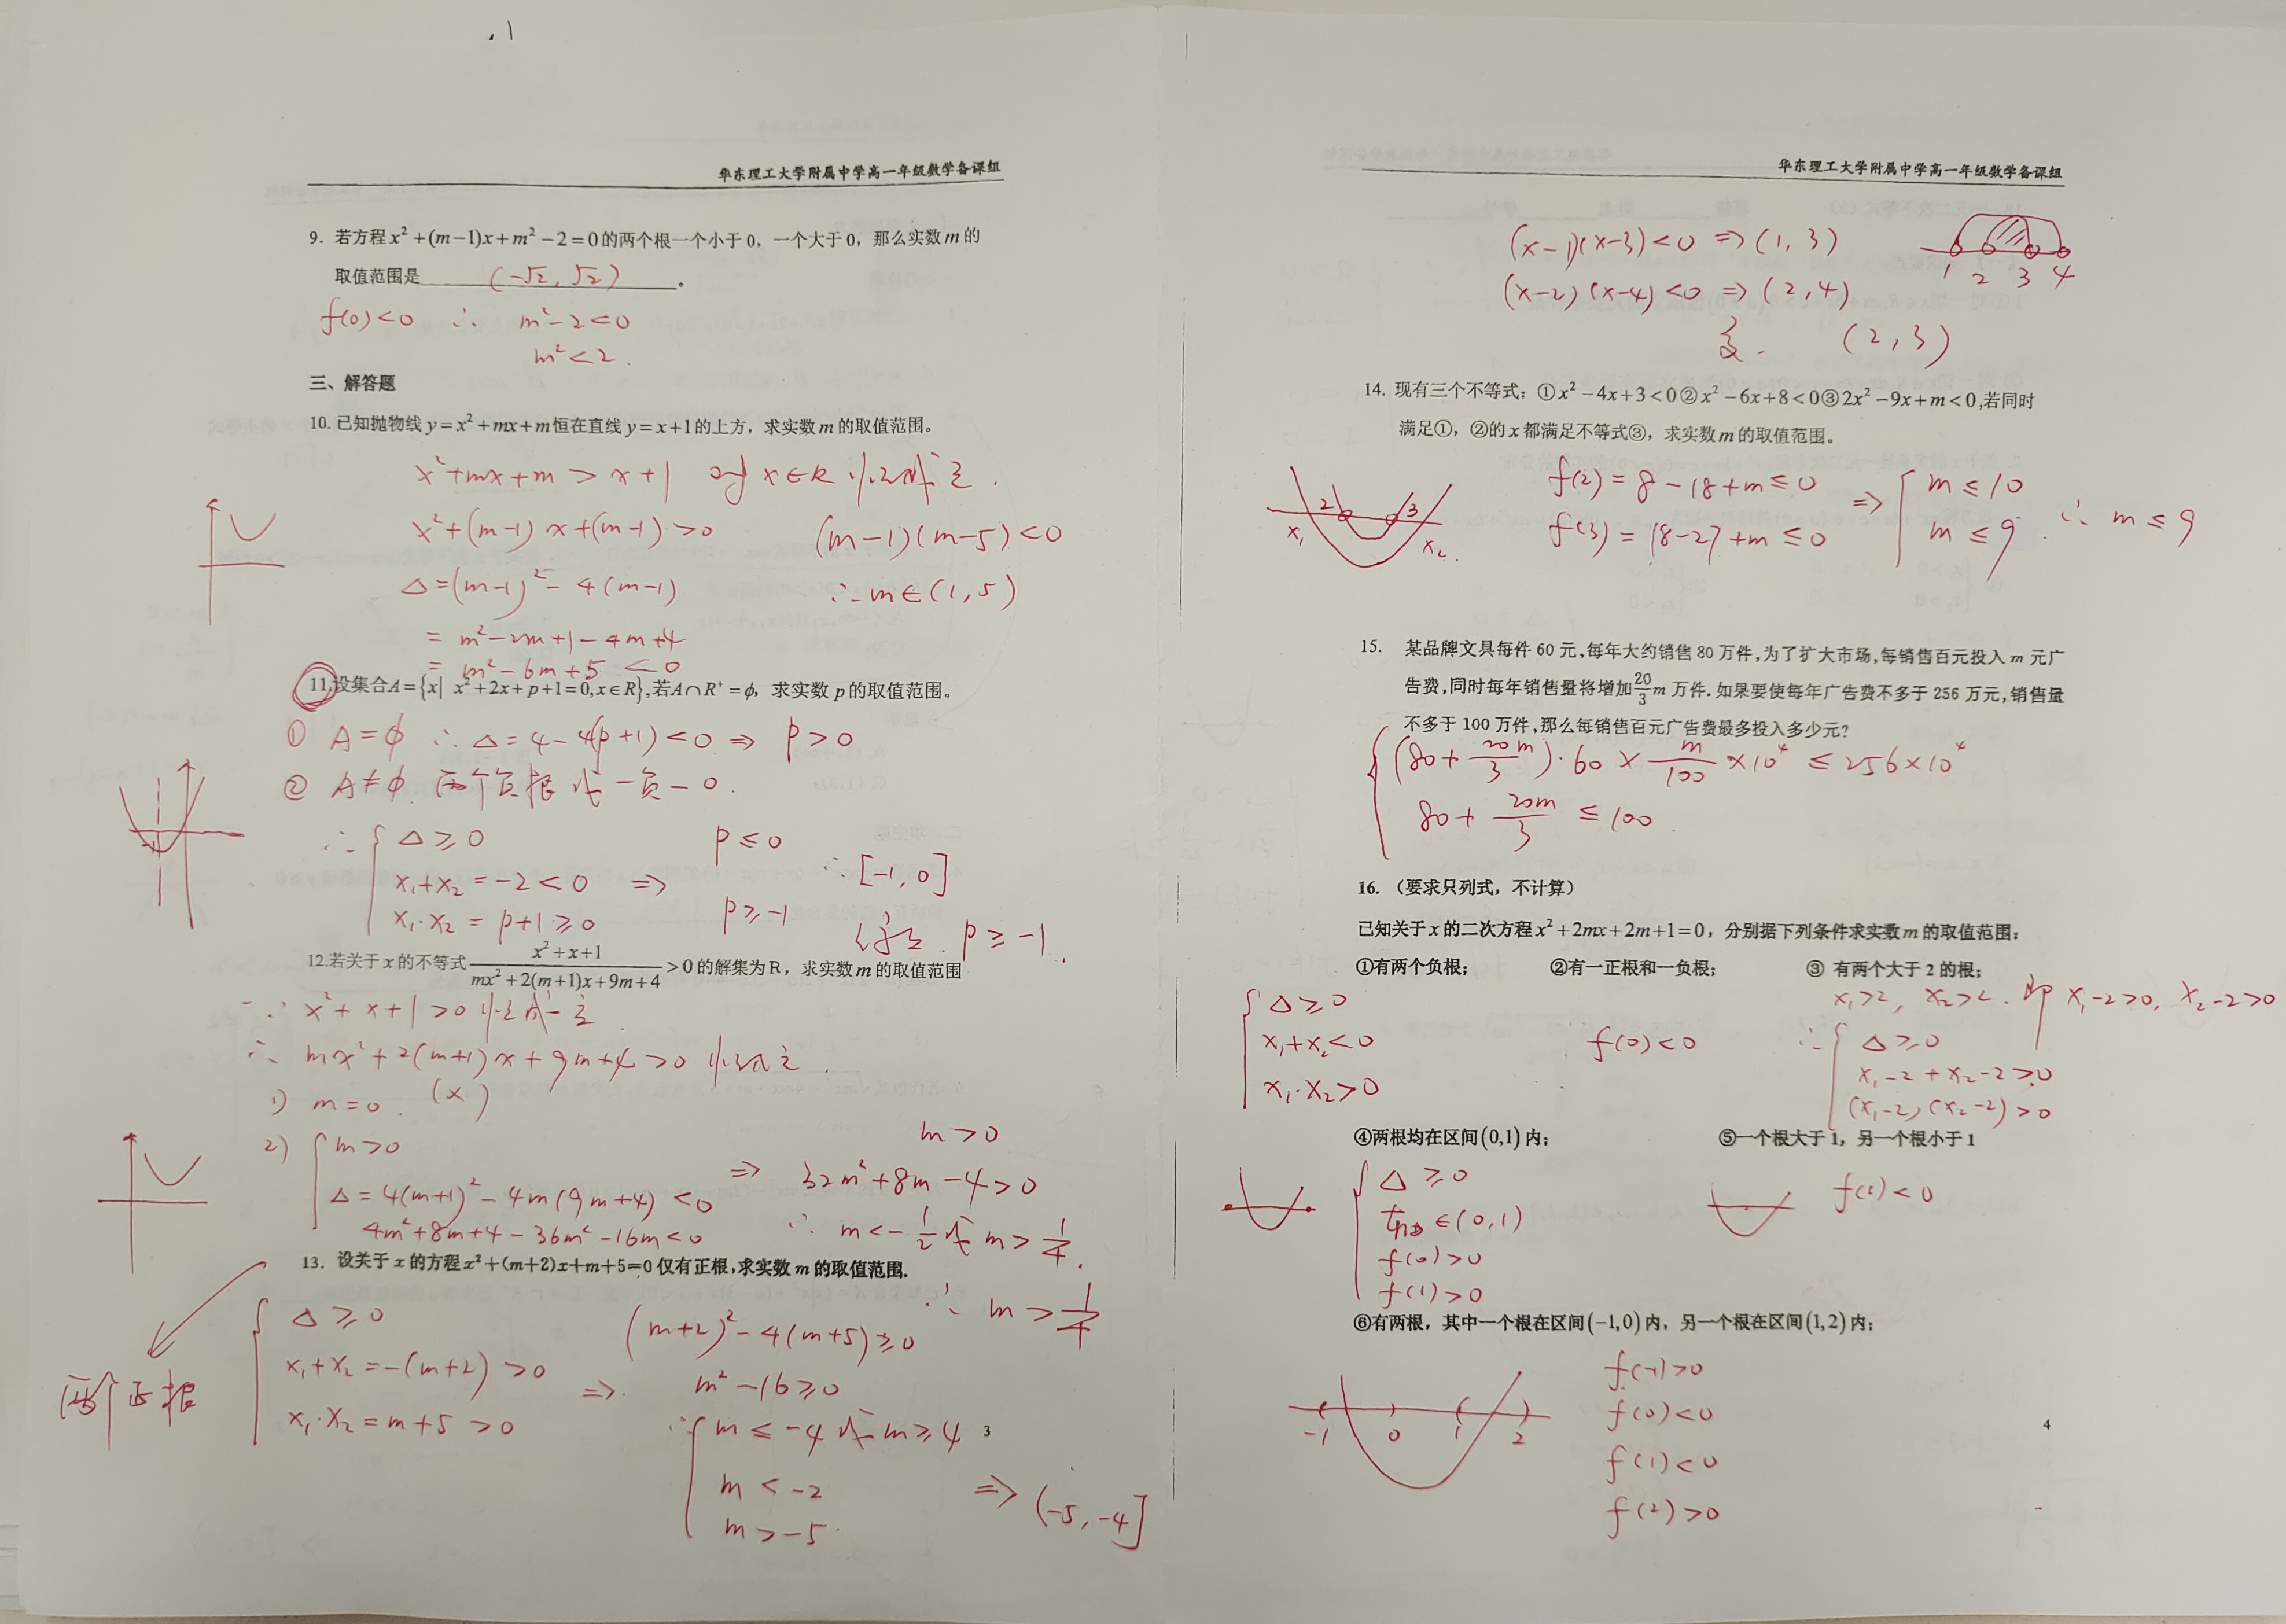 华东理工大学附属中学高一年级数学备课组
9. 若方程x²+(m−1)x+m²−2=0的两个根一个小于0，一个大于0，那么实数m的
取值范围是 (-√2, √2) 。
f(0)<0 ∴ m²-2<0
m²<2.
三、解答题
10. 已知抛物线y=x²+mx+m恒在直线y=x+1的上方，求实数m的取值范围。
x²+mx+m > x+1 对 x∈R 恒成立.
x²+(m-1)x+(m-1)>0 (m-1)(m-5)<0
Δ=(m-1)²-4(m-1) ∴m∈(1,5)
= m²-2m+1-4m+4
= m²-6m+5 <0
11.设集合A={x| x²+2x+p+1=0,x∈R},若A∩R⁺=ϕ，求实数p的取值范围。
① A=ϕ ∴Δ=4-4(p+1)<0 ⇒ p>0
② A≠ϕ. 两个负根或一负一0.
∴ { Δ≥0 p≤0
x₁+x₂=-2<0 ⇒ ∴[-1,0]
x₁·x₂=p+1≥0 p≥-1 综上. p≥-1.
12.若关于x的不等式 (x²+x+1)/(mx²+2(m+1)x+9m+4) >0的解集为R，求实数m的取值范围
∵ x²+x+1>0恒成立
∴ mx²+2(m+1)x+9m+4>0 恒成立.
1) m=0. (×)
2) { m>0 m>0
Δ=4(m+1)²-4m(9m+4)<0 ⇒ 32m²+8m-4>0
4m²+8m+4-36m²-16m<0 ∴ m<-1/2或m>1/4.
∴ m>1/4
13. 设关于x的方程x²+(m+2)x+m+5=0仅有正根,求实数m的取值范围.
两个正根
{ Δ≥0 (m+2)²-4(m+5)≥0
x₁+x₂=-(m+2)>0 ⇒ m²-16≥0
x₁·x₂=m+5>0 ∴{ m≤-4或m≥4
m<-2
m>-5. ⇒ (-5,-4]
3
华东理工大学附属中学高一年级数学备课组
(x-1)(x-3)<0 ⇒(1,3)
(x-2)(x-4)<0 ⇒(2,4)
1 2 3 4
(2,3)
14. 现有三个不等式：①x²−4x+3<0②x²−6x+8<0③2x²−9x+m<0,若同时
满足①，②的x都满足不等式③，求实数m的取值范围。
x₁ 2 3 x₂
f(2)=8-18+m≤0 ⇒ { m≤10
f(3)=18-27+m≤0 m≤9. ∴ m≤9
15. 某品牌文具每件60元,每年大约销售80万件,为了扩大市场,每销售百元投入m元广
告费,同时每年销售量将增加20/3 m万件.如果要使每年广告费不多于256万元,销售量
不多于100万件,那么每销售百元广告费最多投入多少元?
{ (80+20m/3)·60×m/100×10⁴≤256×10⁴
80+20m/3≤100.
16. （要求只列式，不计算）
已知关于x的二次方程x²+2mx+2m+1=0，分别据下列条件求实数m的取值范围：
①有两个负根； ②有一正根和一负根； ③ 有两个大于2的根；
x₁>2, x₂>2. 即 x₁-2>0, x₂-2>0
{ Δ≥0
x₁+x₂<0
x₁·x₂>0
f(0)<0
∴{ Δ≥0
x₁-2+x₂-2>0
(x₁-2)(x₂-2)>0
④两根均在区间(0,1)内； ⑤一个根大于1，另一个根小于1
{ Δ≥0
∈(0,1)
f(0)>0
f(1)>0
f(1)<0
⑥有两根，其中一个根在区间(−1,0)内，另一个根在区间(1,2)内；
-1 0 1 2
f(-1)>0
f(0)<0
f(1)<0
f(2)>0
4